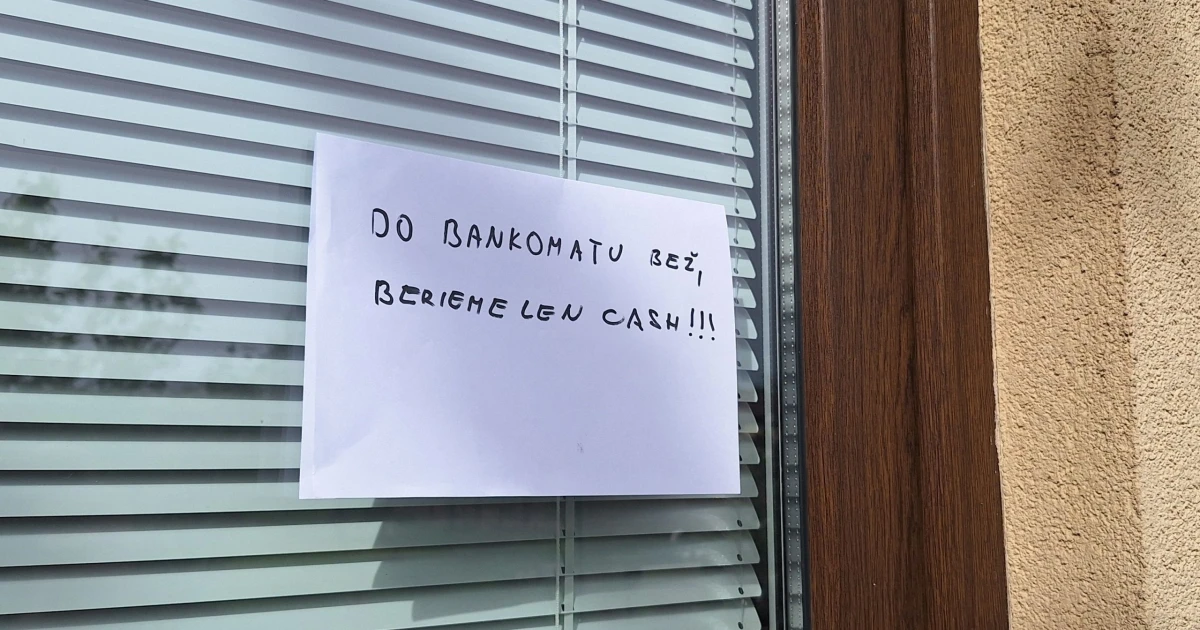 DO BANKOMATU BEŽ,
BERIEME LEN CASH!!!